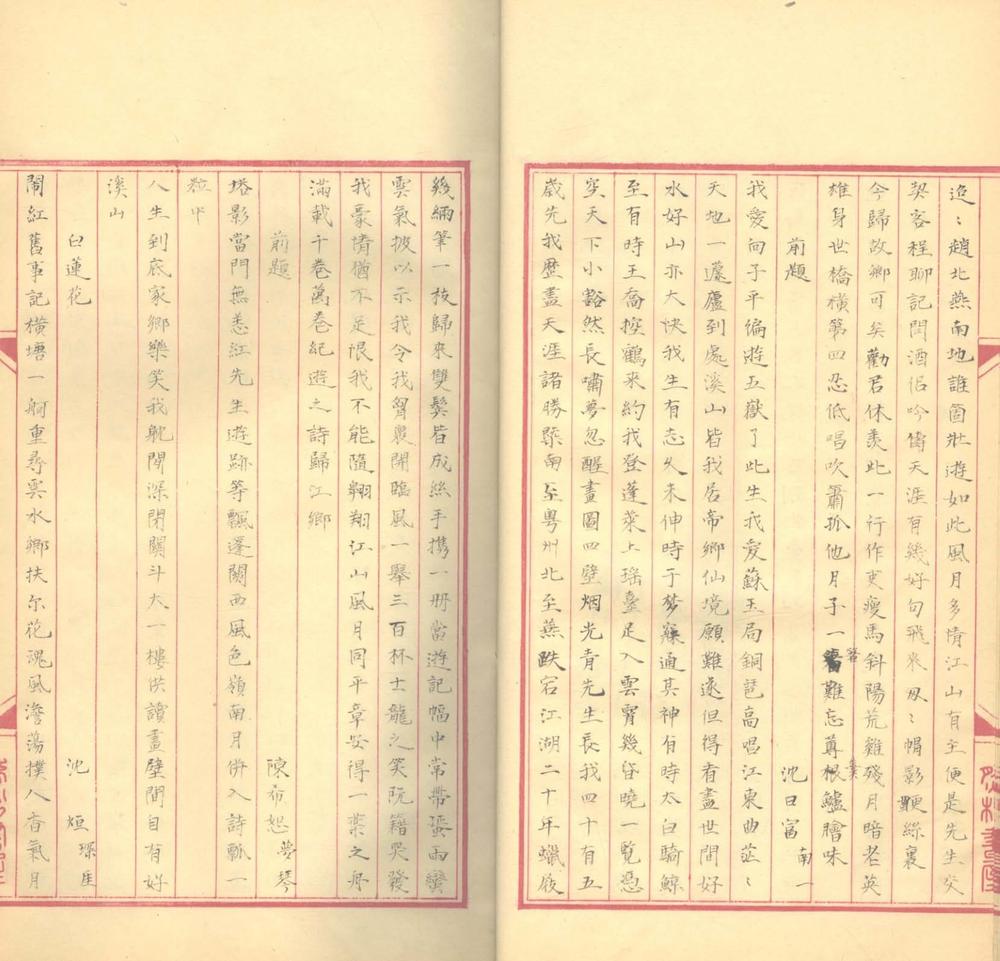 迢〻趙北燕南地誰箇壯遊如此風月多情江山有主便是先生突
契客程聊記問酒侶吟儔天涯有幾好句飛來叒〻帽影鞭絲裏
今歸故鄉可矣勸君休羨此一行作吏瘦馬斜陽荒雞殘月暗老英
雄身世橋橫第四忍低唱吹簫孤他月子一箸難忘蓴根鱸膾味
前題 沈日富 南一
我愛向子平偏遊五嶽了此生我愛蘇玉局銅琶高唱江東曲茫〻
天地一蘧廬到處溪山皆我居帝鄉仙境願難遂但得看盡世間好
水好山亦大快我生有志久未伸時于夢寐通其神有時太白騎鯨
至有時王喬控鶴來約我登蓬萊上瑤臺足入雲霄幾層曉一覽憑
空天下小豁然長嘯夢忽醒畫圖四壁烟光青先生長我四十有五
歲先我歷盡天涯諸勝槩南至粵州北至燕跌宕江湖二十年蠟屐
幾緉筆一枝歸來雙鬢皆成絲手攜一冊當遊記幅中常帶蜑雨蠻
雲氣披以示我令我胷襄開臨風一舉三百杯士龍之笑阮籍哭發
我豪情猶不足恨我不能隨翱翔江山風月同平章安得一葉之舟
滿載千卷萬卷紀遊之詩歸江鄉
前題 陳希恕 夢琴
塔影當門無恙紅先生遊跡等飄蓬關西風色嶺南月併入詩瓢一
粒中
人生到底家鄉樂笑我躭閒深閉關斗大一樓供讀畫壁間自有好
溪山
白蓮花 沈烜 琛厓
鬧紅舊事記橫塘一舸重尋雲水鄉扶尔花魂風澹蕩撲人香氣月